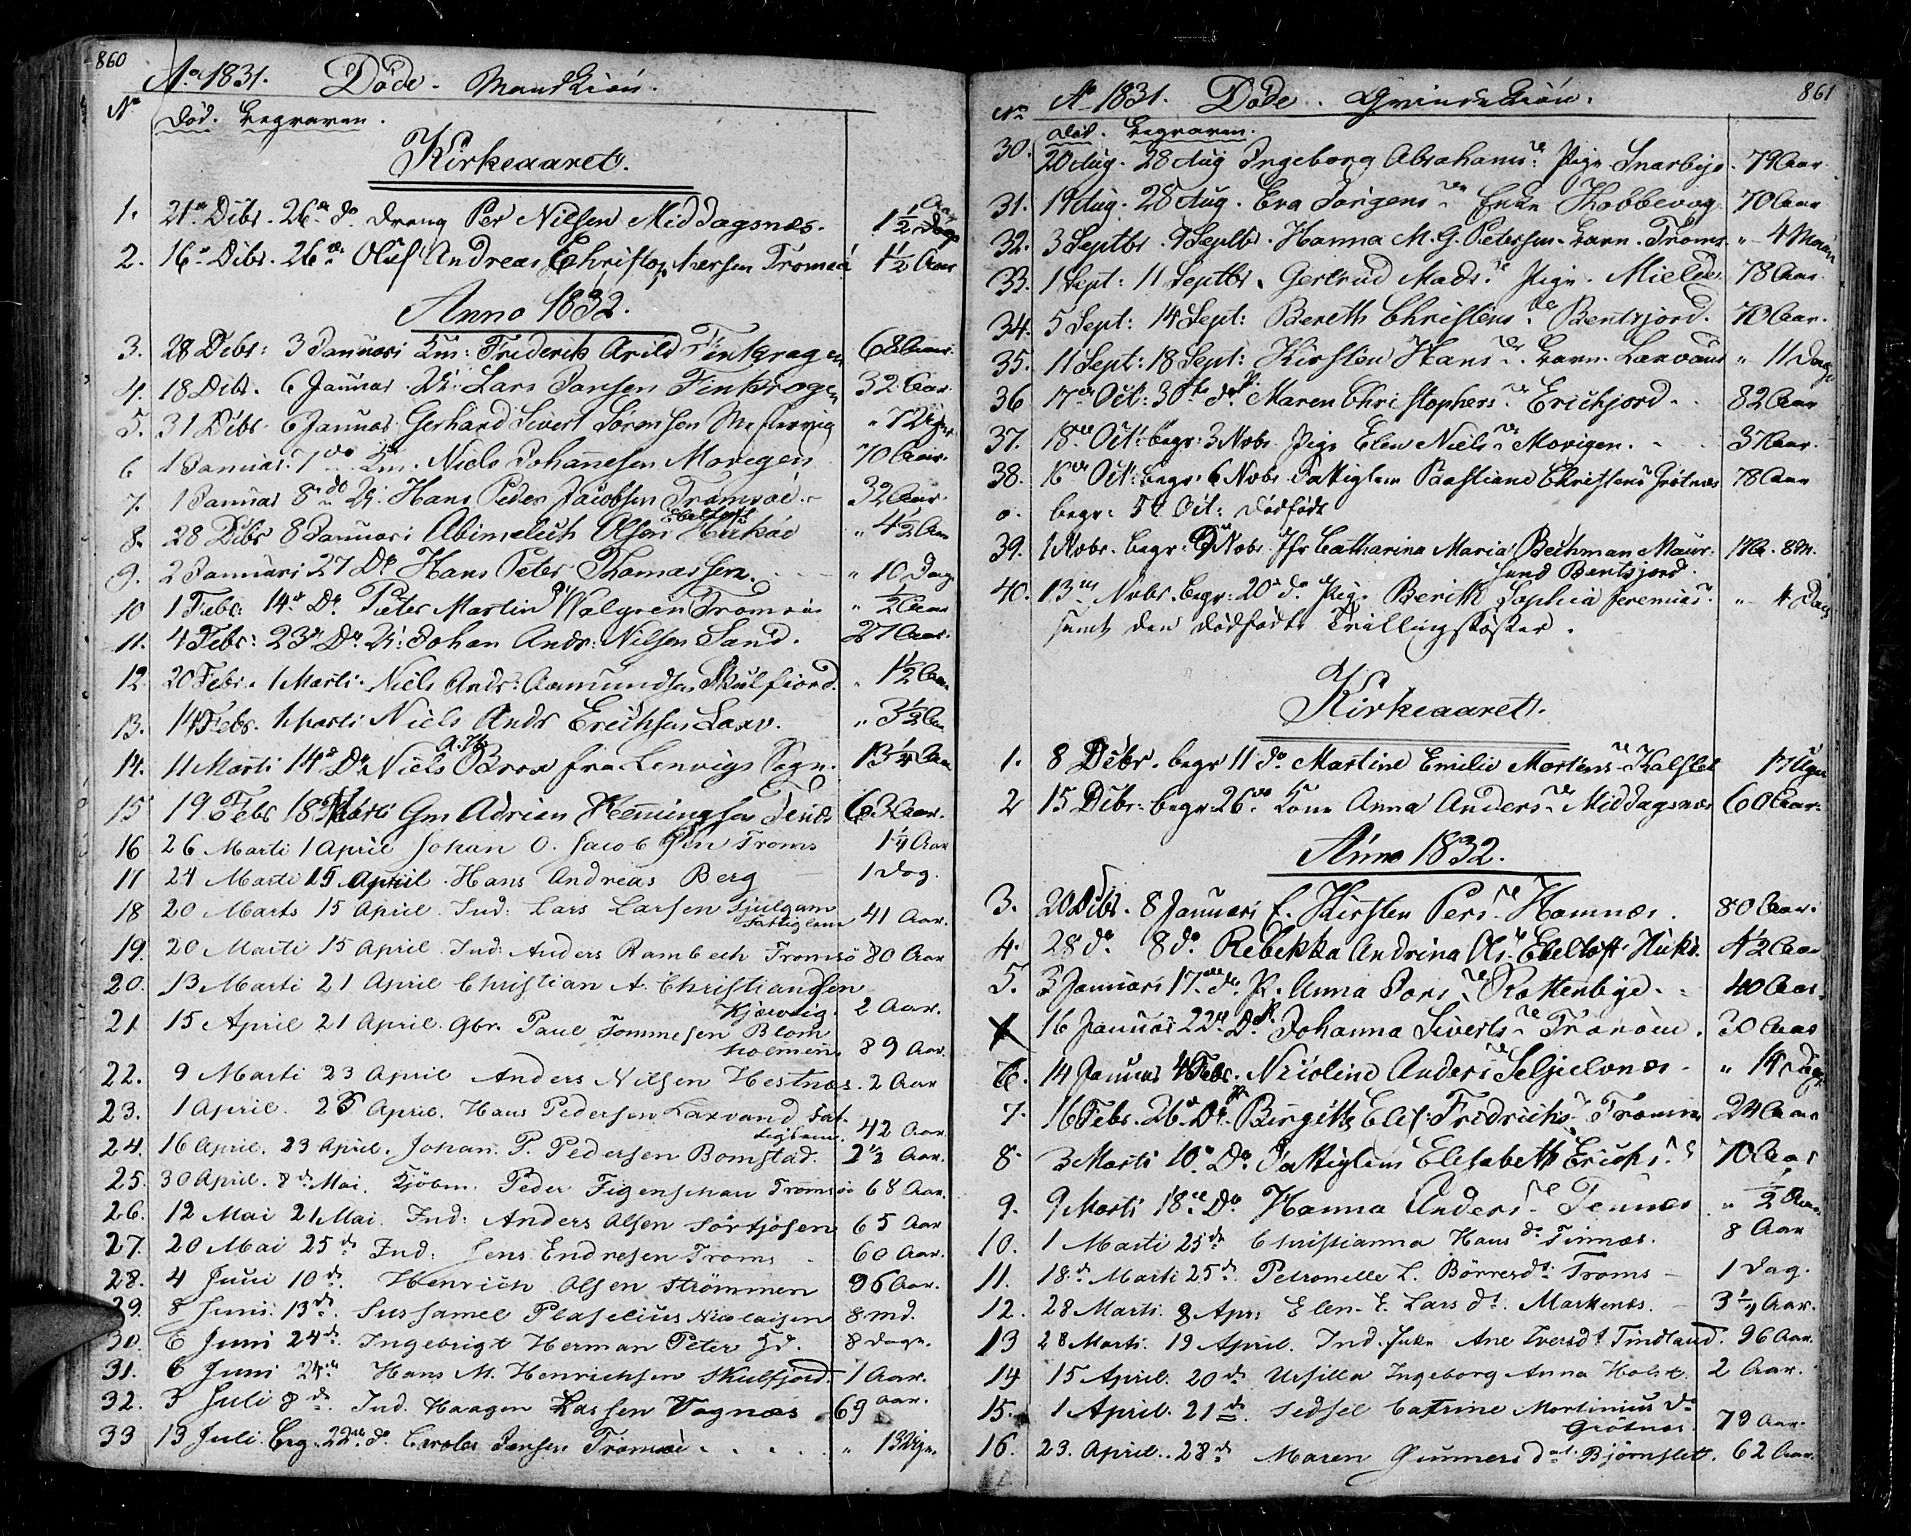 860
Ao 1831. Døde. Mandkiøn.
No død. begraven.
Kirkeaaret.
1. 21de Dcbr. 26de do dreng Per Nilsen Middagsnæs. 1½ Dage Aar
2. 16de Dcbr. 26de Oluf Andreas Christophersen Tromsøe 1½ Aar
Anno 1832.
3. 28 Debr: 3 Januari Friderik Arild Finkragen 68 Aar.
4. 18 Debr. 6 Januar Lars Jansen Finkrogen 32 Aar.
5. 31 Debr. 6 Januar Gerhard Sivert Sørensen Mestervig " 7 Uger
6 1 Januar. 7 do Niels Johannesen Movigen 70 Aar.
7. 1 Januar 8 do Hans Peder Jacobsen Tromsøe. 32 Aar.
Ebeltoft
8. 28 Debr 8 Januari Abimelech Olsen " 4½ Aar
9. 2 Januari 27 Do Hans Peter Thomassen. " 10 Dage
10 1 Febr: 14de Do Peter Martin Walgren Tromsøe " ½ Aar
11. 4 Febr: 23de Do Johan Andr: Nilsen Sand. 27 Aar.
12. 20 Febr. 1 Marti. Niels Andr: Aamundsen Skulfiord. " 1½ Aar
13. 14 Febr. 1 Marti Niels Andr Erichsen Laxv. " 3½ Aar
14. 11 Marti 14de Do Niels Brox fra Lenvigs Sogn. 13¼ Aar
15 19 Febr 18 Marti Gm Adrian Henningsen 63 Aar.
16 26 Marti 1 April Johan O. Jacobsen Troms 1¼ Aar
17 24 Marti 15 April. Hans Andreas Berg 1 Dag.
18 20 Marts 15 April. Ind: Lars Larsen
Fattiglem 41 Aar.
19. 20 Marti 15 April. Ind: Anders Rambech Tromsø 80 Aar
20. 13 Marti 21 April Christian A. Christiansen
Kjærvig. 2 Aar.
21 15 April 21 April. Gbr. Paul Tommesen Blom
Holmen 89 Aar.
22. 9 Marti 23 April Anders Nilsen Hestnæs. 2 Aar
23. 1 April. 23 April. Hans Pedersen Laxvand Fat-
tiglem. 42 Aar.
24. 16 April. 23 April. Johan. P. Pedersen Bomstad. 2½ Aar.
25. 30 April. 8de Mai. Kjøbm. Peder Figenschau Tromsø 68 Aar.
26. 12 Mai 21 Mai. Ind: Anders Olsen Sørtjosen 65 Aar
27. 20 Mai 25de Ind: Jens Endresen Troms 60 Aar.
28. 4 Juni 10de Henrich Olsen Strømmen 96 Aar.
29. 8 Juni. 13de Plaselius Nicolaisen 8 md.
30. 6 Juni 24de Ingebrigt Herman Peter Sd. 8 dage.
31. 6 Juni 24de Hans M. Henrichsen Skulfjord. 1 Aar.
32. 3 Juli 8de Ind. Haagen Lassen Vagnæs 69 aar.
33 13 Juli. Beg. 22de do Jansen Tromsøe " 13 Uger.
861
No Ao 1831. Døde. Qvindekiøn.
død. begraven.
30. 20 Aug. 28 Aug Ingeborg Abrahamsde: Pige Snarbye. 79 Aar.
31. 19 Aug. 28 Aug. Eva Jørgensde Enke Kobbevog 70 Aar
32. 3 Septbr. 9 Septbr. Hanna M. G. Petersen. barn. Troms " 4 Maan
33. 1 Sept: 11 Septbr. Gertrud Madsde Pige. 78 Aar.
34. 5 Sept: 14 Sept: Bereth Christensde Bentsjord. 70 Aar.
35. 11 Sept: 18 Sept: Kirsten Hansde barn. Laxvand " 11 Dage
36 17de Oct: 30te do Maren Christophersde Erichjord. 82 Aar
37. 18de Oct: begr: 3 Nvbr. Pige Elen Nielsde Movigen. 37 Aar.
38. 16de Oct: begr: 6 Nvbr. Fattiglem Bastiane Christensde Grøtnæs 78 Aar
o. begr: Oct: dødfødt
39. 1 Nvbr. begr. Nvbr. Jfr Catharina Maria Bechman Maur-
sund Bentsjord. 17 Aa. 8 M.
40. 13de Nvbr. begr: 20de do Pige Berith Sophia Jeremiasde " 4 Dage
samt den dødfødte Trillingsøster.
Kirkeaaret.
1. 8 Debr. begr 11 do Martine Emilie Mortensde Kalslet 17 Uger
2 15 Dcbr: begr 26de Kone Anna Andersde Middagsnæs 60 Aar.
Anno 1832.
3. 20 Debr. 8 Januari E. Kirsten Persde Hamnæs. 80 Aar.
4. 28 do 8 do Rebekka Andrina Olsde Ebeltoft 4½ Aar
5. 3 Januari 17de do P. Anna Rakkenbye. 40 Aar.
16 Januar 22de Do P. Johanna Sivertsde 30 Aar
6. 14 Januar 4 Febr. Nicoline Andersde Seljelvnes " 14 Dage
7. 16 Febr. 26de Do Birgitte Elis: Fredrichsde Tromsøe 24 Aar
8. 3 Marti 10de Do Fattiglem Elisabeth Erichsde 70 Aar
9. 9 Marti 18de Do Hanna Andersde Tennes " ½ Aar
10. 1 Marti 25de Christianna Hansda Finnæs. 8 Aar
11. 18de Marti 25de Petronelle L. Børresdt Troms 1 Dag.
12. 28 Marti. 8 Apr: Elen E. Larsdt. Markenes. 3¼ Aar.
13 28 Marti. 19 April. Ind. Enke Ane Iversdt Tindland. 96 Aar.
14 15 April. 20de Ursilla Ingeborg Anna Holst 2 Aar.
15. 1 April. 21de Sidsel Catrine Mortinius Da
Grøtnæs. 79 Aar.
16. 23. April. 28de Maren Gunnersdat. Bjørnslet. 62 Aar.